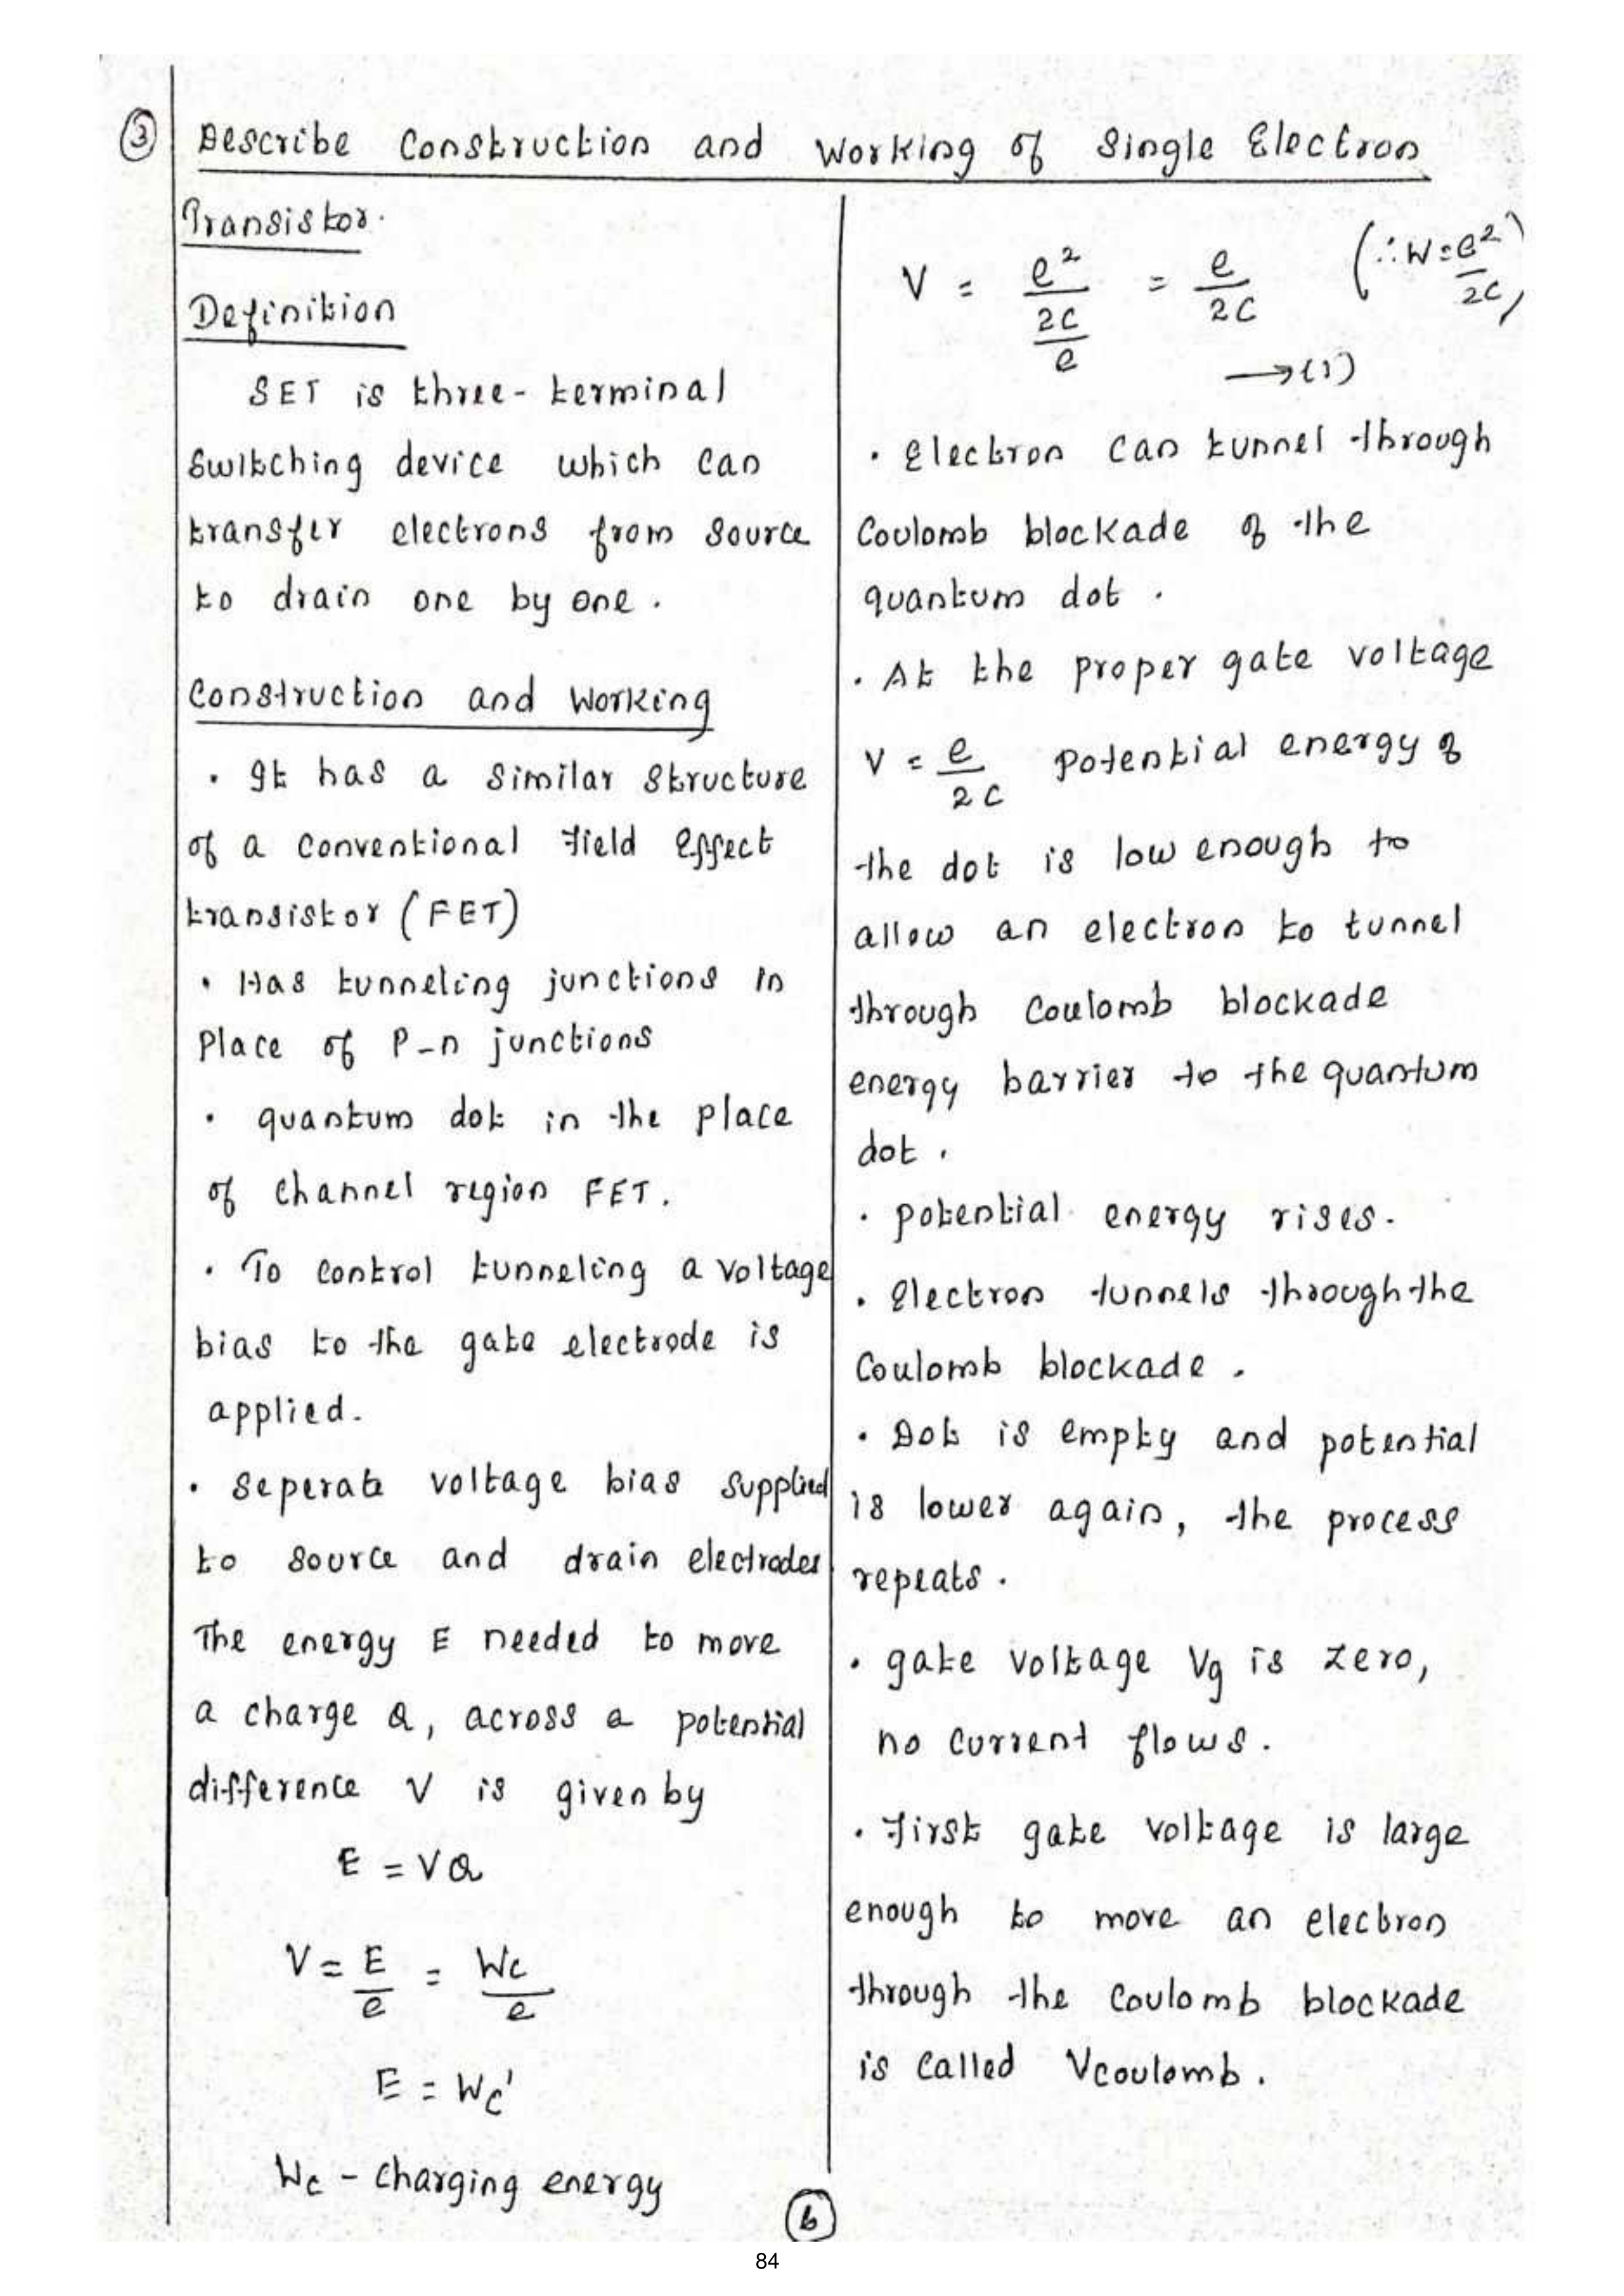 ③ Describe Construction and Working of Single Electron
Transistor.
Definition
SET is three-terminal
Switching device which can
transfer electrons from source
to drain one by one.
Construction and Working
• It has a similar structure
of a conventional Field Effect
transistor (FET)
• Has tunneling junctions in
Place of P-n junctions
• quantum dot in the place
of channel region FET.
• To control tunneling a voltage
bias to the gate electrode is
applied.
• Seperate voltage bias supplied
to source and drain electrodes
The energy E needed to move
a charge Q, across a potential
difference V is given by
E = VQ
V = E/e = Wc/e
E = Wc'
Wc - Charging energy
V = (e²/2C)/e = e/2C (∴ W = e²/2C)
→ (1)
• Electron can tunnel through
Coulomb blockade of the
quantum dot.
• At the proper gate voltage
V = e/2C potential energy of
the dot is low enough to
allow an electron to tunnel
through Coulomb blockade
energy barrier to the quantum
dot.
• potential energy rises.
• Electron tunnels through the
Coulomb blockade.
• Dot is empty and potential
is lower again, the process
repeats.
• gate voltage Vg is zero,
no current flows.
• First gate voltage is large
enough to move an electron
through the Coulomb blockade
is called Vcoulomb.
6
84